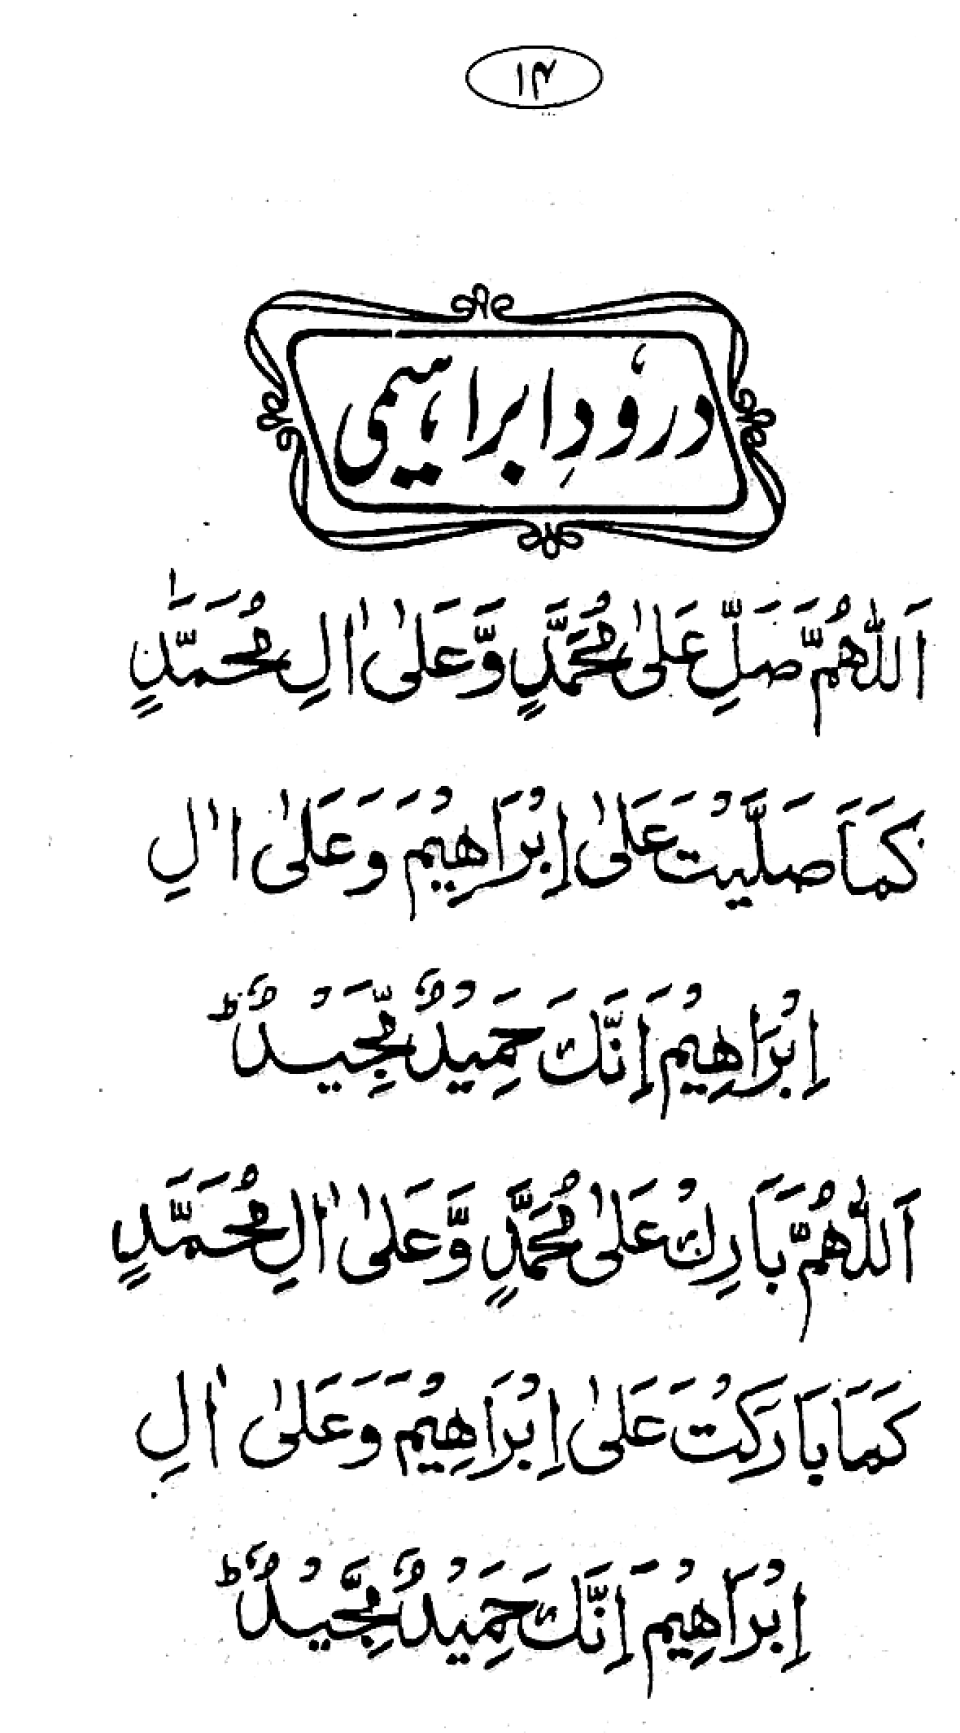 ۱۴
درُودِ ابراہیمی
اَللّٰهُمَّ صَلِّ عَلٰى مُحَمَّدٍ وَّعَلٰى اٰلِ مُحَمَّدٍ
كَمَا صَلَّيْتَ عَلٰى اِبْرَاهِيْمَ وَعَلٰى اٰلِ
اِبْرَاهِيْمَ اِنَّكَ حَمِيْدٌ مَّجِيْدٌ ؕ
اَللّٰهُمَّ بَارِكْ عَلٰى مُحَمَّدٍ وَّعَلٰى اٰلِ مُحَمَّدٍ
كَمَا بَارَكْتَ عَلٰى اِبْرَاهِيْمَ وَعَلٰى اٰلِ
اِبْرَاهِيْمَ اِنَّكَ حَمِيْدٌ مَّجِيْدٌ ؕ